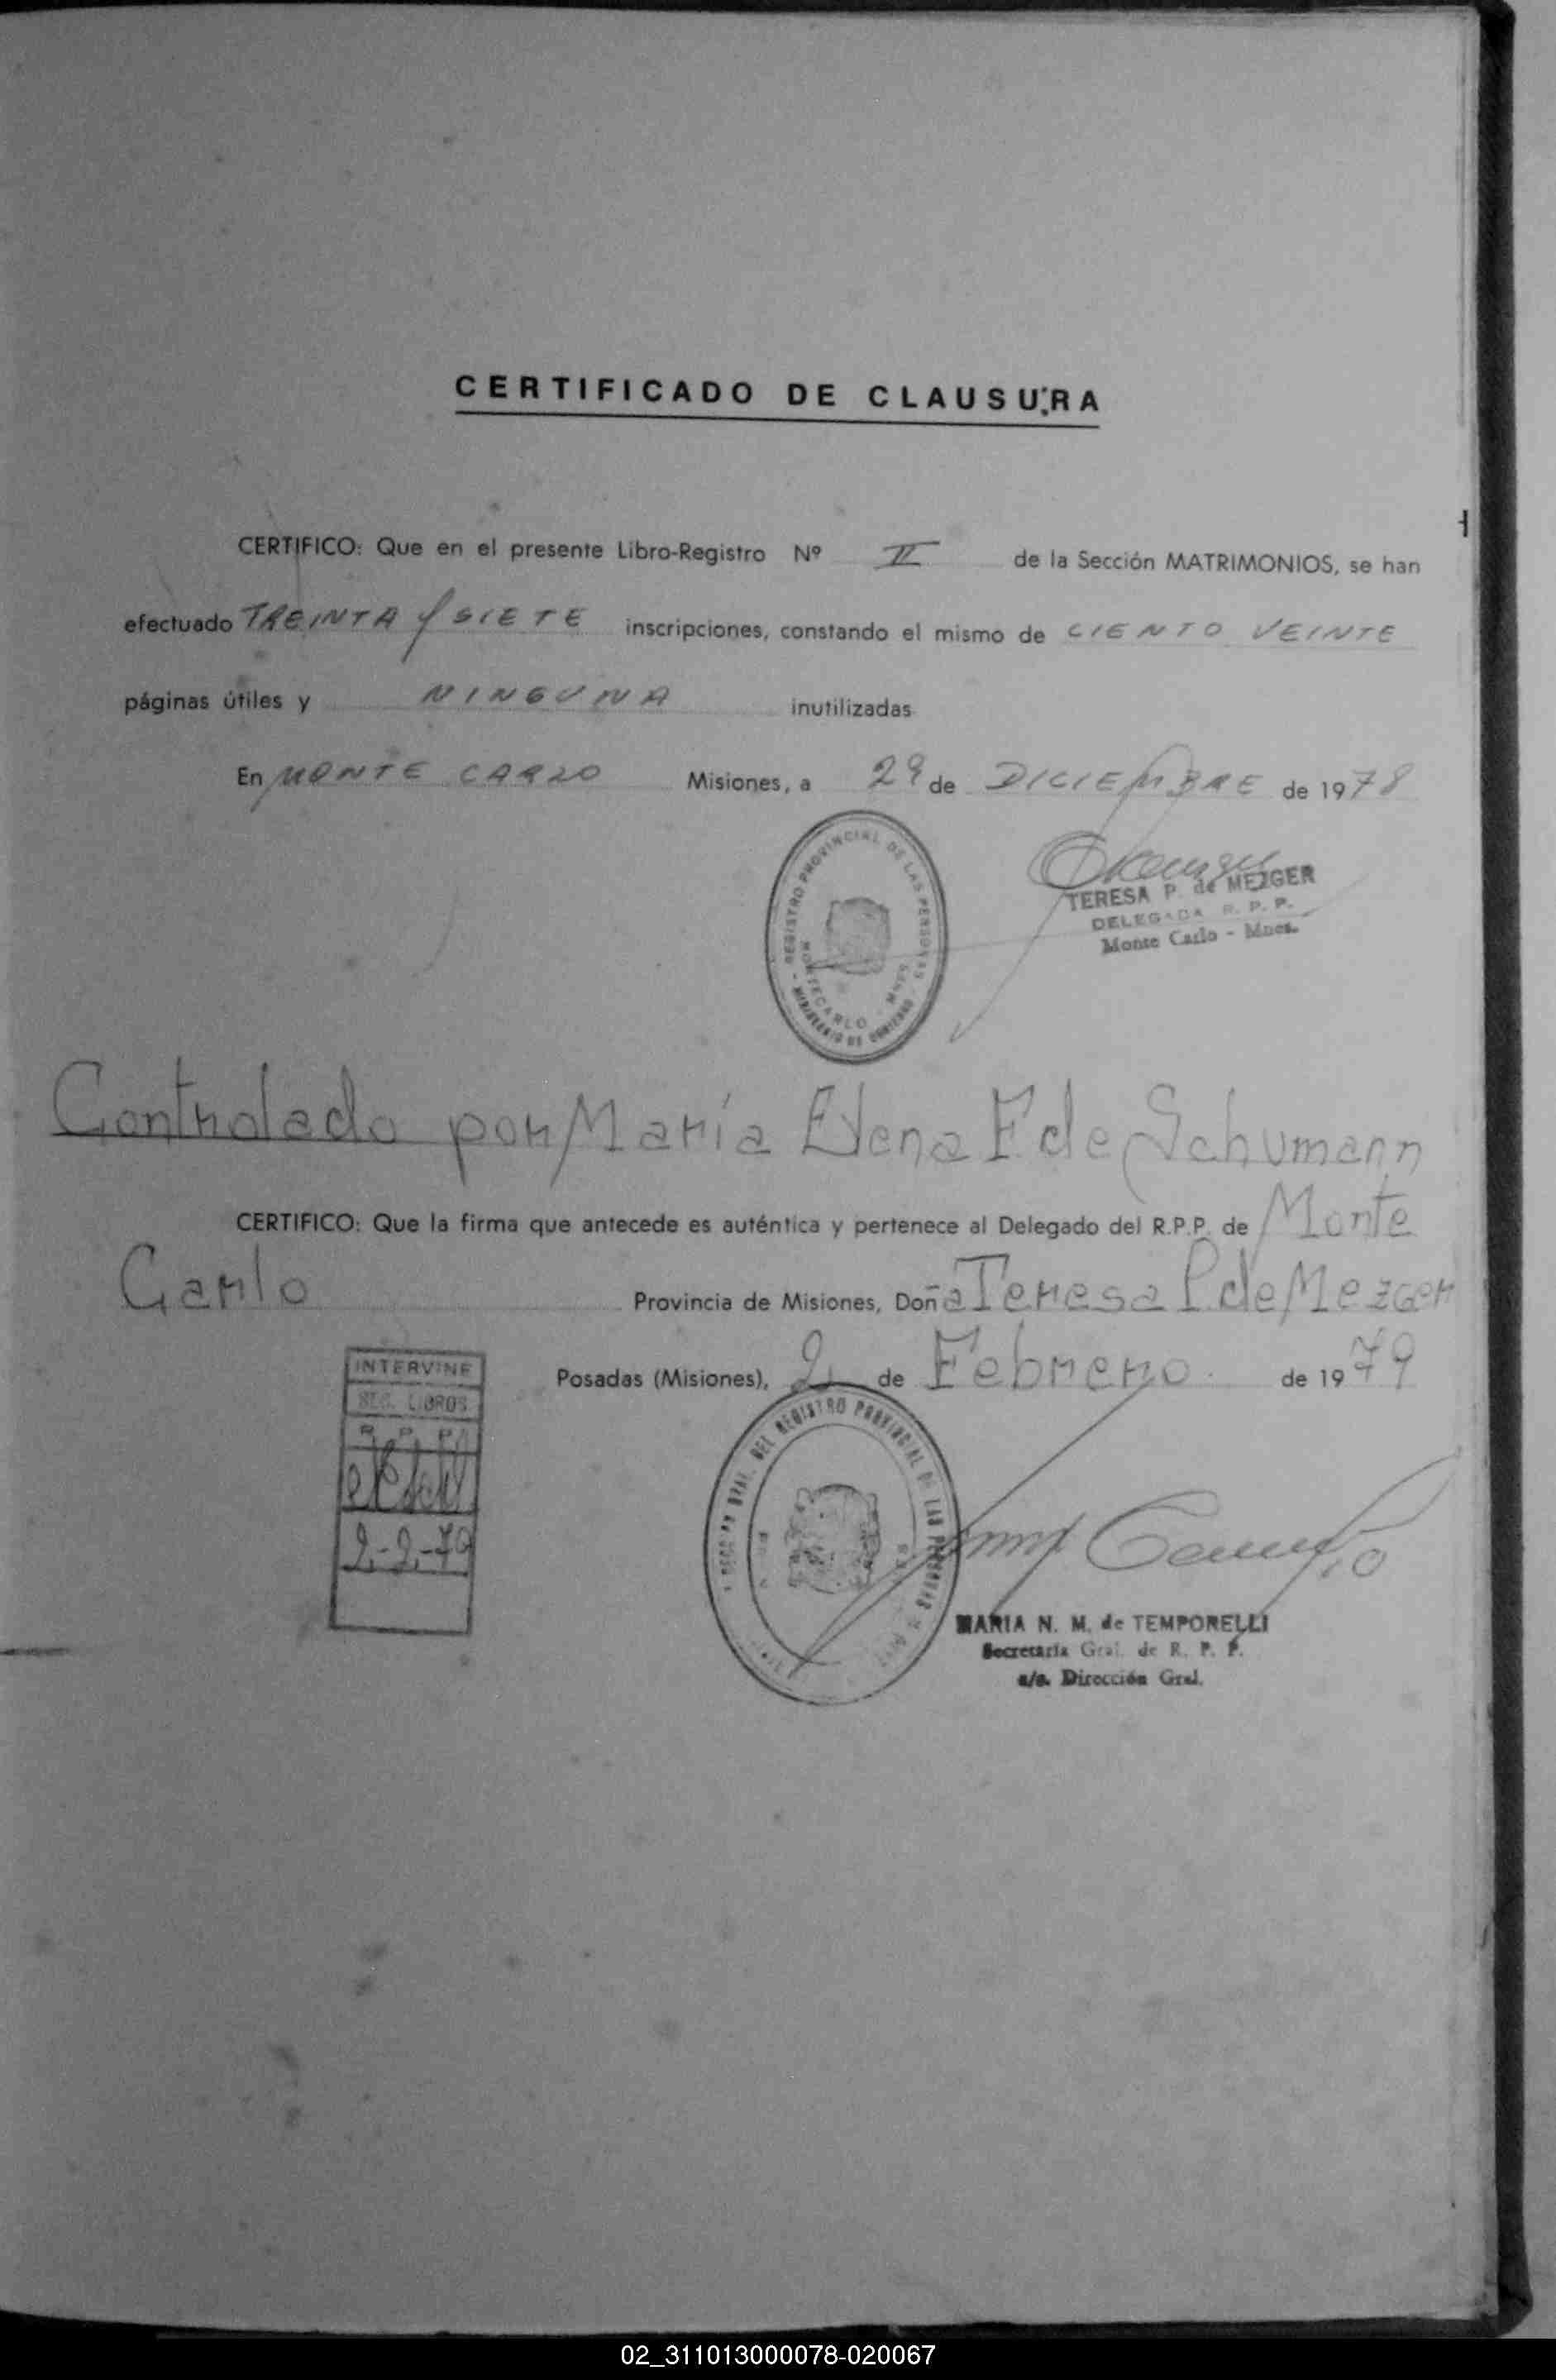 CERTIFICADO DE CLAUSURA
CERTIFICO: Que en el presente Libro-Registro Nº II de la Sección MATRIMONIOS, se han
efectuado TREINTA y SIETE inscripciones, constando el mismo de CIENTO VEINTE
páginas útiles y NINGUNA inutilizadas
En MONTE CARLO Misiones, a 29 de DICIEMBRE de 1978
REGISTRO PROVINCIAL DE LAS PERSONAS
MONTECARLO - Mnes
- MINISTERIO DE GOBIERNO -
TERESA P. de MEZGER
DELEGADA R. P. P.
Monte Carlo - Mnes.
Controlado por María Elena F. de Schumann
CERTIFICO: Que la firma que antecede es auténtica y pertenece al Delegado del R.P.P. de Monte
Carlo Provincia de Misiones, Doña Teresa P. de Mezger
Posadas (Misiones), 2 de Febrero de 1979
INTERVINE
SEC. LIBROS
R. P. P.
2-2-79
GRAL. DEL REGISTRO PROVINCIAL DE LAS PERSONAS
MARIA N. M. de TEMPORELLI
Secretaria Gral. de R. P. P.
a/c. Dirección Gral.
02_311013000078-020067